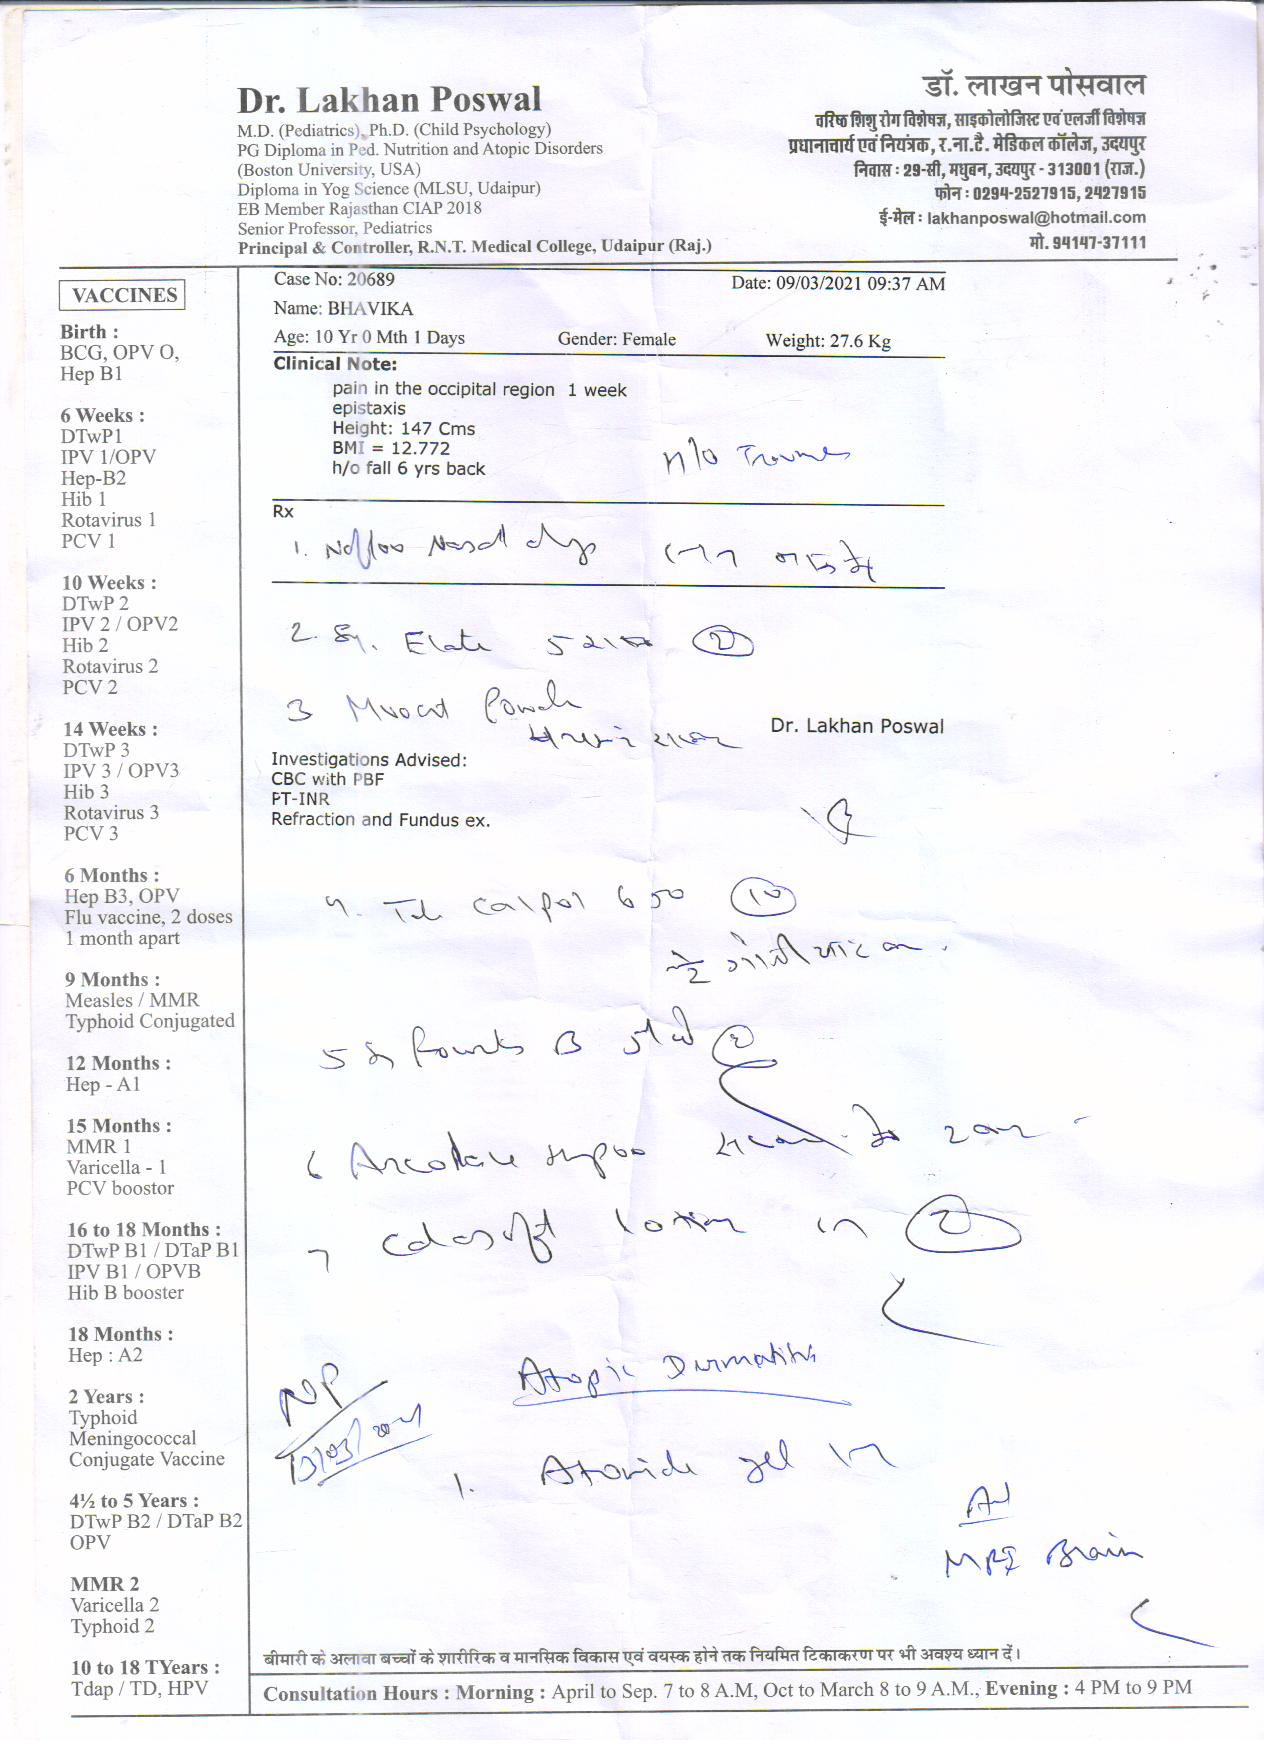 Dr. Lakhan Poswal
M.D. (Pediatrics), Ph.D. (Child Psychology)
PG Diploma in Ped. Nutrition and Atopic Disorders
(Boston University, USA)
Diploma in Yog Science (MLSU, Udaipur)
EB Member Rajasthan CIAP 2018
Senior Professor, Pediatrics
Principal & Controller, R.N.T. Medical College, Udaipur (Raj.)
डॉ. लाखन पोसवाल
वरिष्ठ शिशु रोग विशेषज्ञ, साइकोलोजिस्ट एवं एलर्जी विशेषज्ञ
प्रधानाचार्य एवं नियंत्रक, र.ना.टै. मेडिकल कॉलेज, उदयपुर
निवास : 29-सी, मधुबन, उदयपुर - 313001 (राज.)
फोन : 0294-2527915, 2427915
ई-मेल : lakhanposwal@hotmail.com
मो. 94147-37111
VACCINES
Birth :
BCG, OPV O,
Hep B1
6 Weeks :
DTwP1
IPV 1/OPV
Hep-B2
Hib 1
Rotavirus 1
PCV 1
10 Weeks :
DTwP 2
IPV 2 / OPV2
Hib 2
Rotavirus 2
PCV 2
14 Weeks :
DTwP 3
IPV 3 / OPV3
Hib 3
Rotavirus 3
PCV 3
6 Months :
Hep B3, OPV
Flu vaccine, 2 doses
1 month apart
9 Months :
Measles / MMR
Typhoid Conjugated
12 Months :
Hep - A1
15 Months :
MMR 1
Varicella - 1
PCV boostor
16 to 18 Months :
DTwP B1 / DTaP B1
IPV B1 / OPVB
Hib B booster
18 Months :
Hep : A2
2 Years :
Typhoid
Meningococcal
Conjugate Vaccine
4½ to 5 Years :
DTwP B2 / DTaP B2
OPV
MMR 2
Varicella 2
Typhoid 2
10 to 18 TYears :
Tdap / TD, HPV
Case No: 20689 Date: 09/03/2021 09:37 AM
Name: BHAVIKA
Age: 10 Yr 0 Mth 1 Days Gender: Female Weight: 27.6 Kg
Clinical Note:
pain in the occipital region 1 week
epistaxis
Height: 147 Cms
BMI = 12.772
h/o fall 6 yrs back
Rx
1. Nasal
2. Sy. 5 2
3
Dr. Lakhan Poswal
Investigations Advised:
CBC with PBF
PT-INR
Refraction and Fundus ex.
4. Calpol 650 10
5
6
7 lotion 2
Atopic Dermatitis
1. gel
MRI Brain
बीमारी के अलावा बच्चों के शारीरिक व मानसिक विकास एवं वयस्क होने तक नियमित टिकाकरण पर भी अवश्य ध्यान दें।
Consultation Hours : Morning : April to Sep. 7 to 8 A.M, Oct to March 8 to 9 A.M., Evening : 4 PM to 9 PM